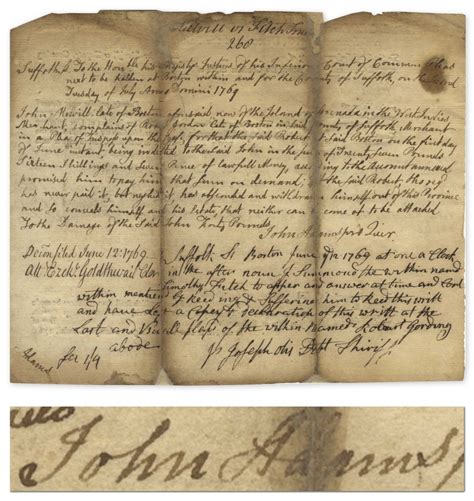 Melvill vs Fitch
268
Suffolk Ss To the Honble his Majestys Justices of his Inferior Court of Common Pleas
next to be holden at Boston within and for the County of Suffolk on the
Tuesday of July Anno Domini 1769
John late of Boston aforesaid now of the Island of Grenada in the West Indies
Merchant Complains of late of Boston in said County of Suffolk Merchant
in a Plea of the case for that the said Robert at said Boston on the first day
of June instant being indebted to the said John in the sum of Twenty Pounds
Sixteen Shillings and pence of lawfull Money, according to the Account annexed
promised him to pay him that sum on demand; Yet the said Robert tho req
has never paid it, but neglects it has absconded and withdrawn himself out of this Province
and so conceals himself and his Estate, that neither can come of to be attached
To the Damage of the said John Forty Pounds
John Adams pro Quer.
Decon filed June 12: 1769
Att Ezekl Goldthwait Cler
Suffolk Ss Boston June 1769 at one a Clock
in the after noon I Summoned the within nam
Timothy Fitch to apper and answer at time and Cort
within mentiond by Reeding & Suffering him to Reed this writt
and have Left a Copey & decoration of this writt at the
Last and Usuele plase of the within Named Robart Gording
abode
pr Joseph Otis Dept Shirif
Adams
fee 1/4
John Adams p